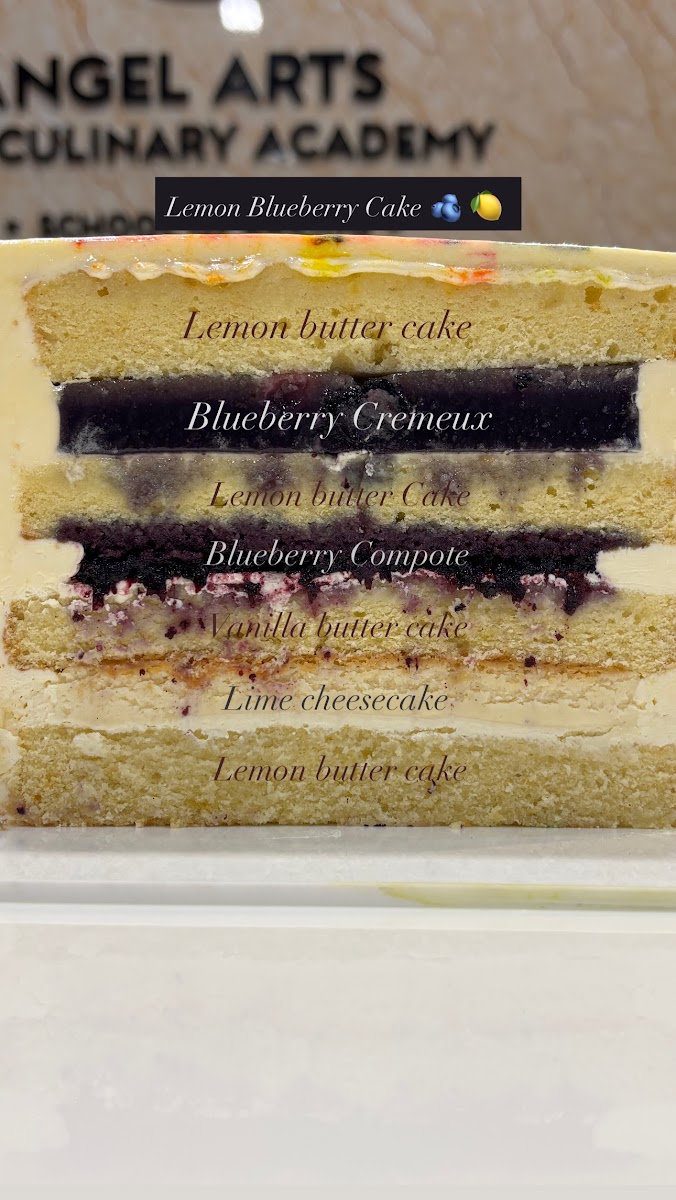 ANGEL ARTS
CULINARY ACADEMY
Lemon Blueberry Cake 🫐 🍋
Lemon butter cake
Blueberry Cremeux
Lemon butter Cake
Blueberry Compote
Vanilla butter cake
Lime cheesecake
Lemon butter cake